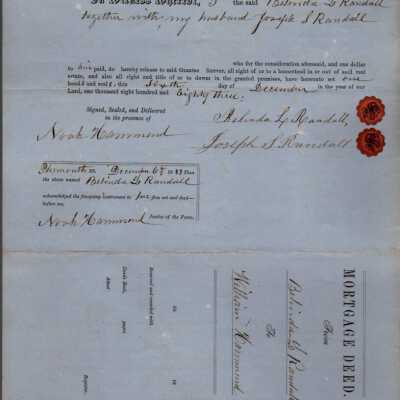 In Witness Whereof, I the said Belinda G Randall
together with my husband Joseph S Randall
who for the consideration aforesaid, and one dollar
to him paid, do hereby release to said Grantee forever, all right of or to a homestead in or out of said real
estate, and also all right and title of or to dower in the granted premises, have hereunto set our
hands and seals, this Sixth day of December in the year of our
Lord, one thousand eight hundred and Eighty three.
Signed, Sealed, and Delivered
in the presence of
Belinda G Randall,
Noah Hammond
Joseph S. Randall
ss. December 6th 1883 Then
the above named Belinda G Randall
acknowledged the foregoing instrument to be free act and deed—
before me,
Noah Hammond Justice of the Peace.
MORTGAGE DEED.
From
Belinda G Randall
To
William Hammond
ss
18
Received and recorded with
Deeds Book, pages
Attest
Register.